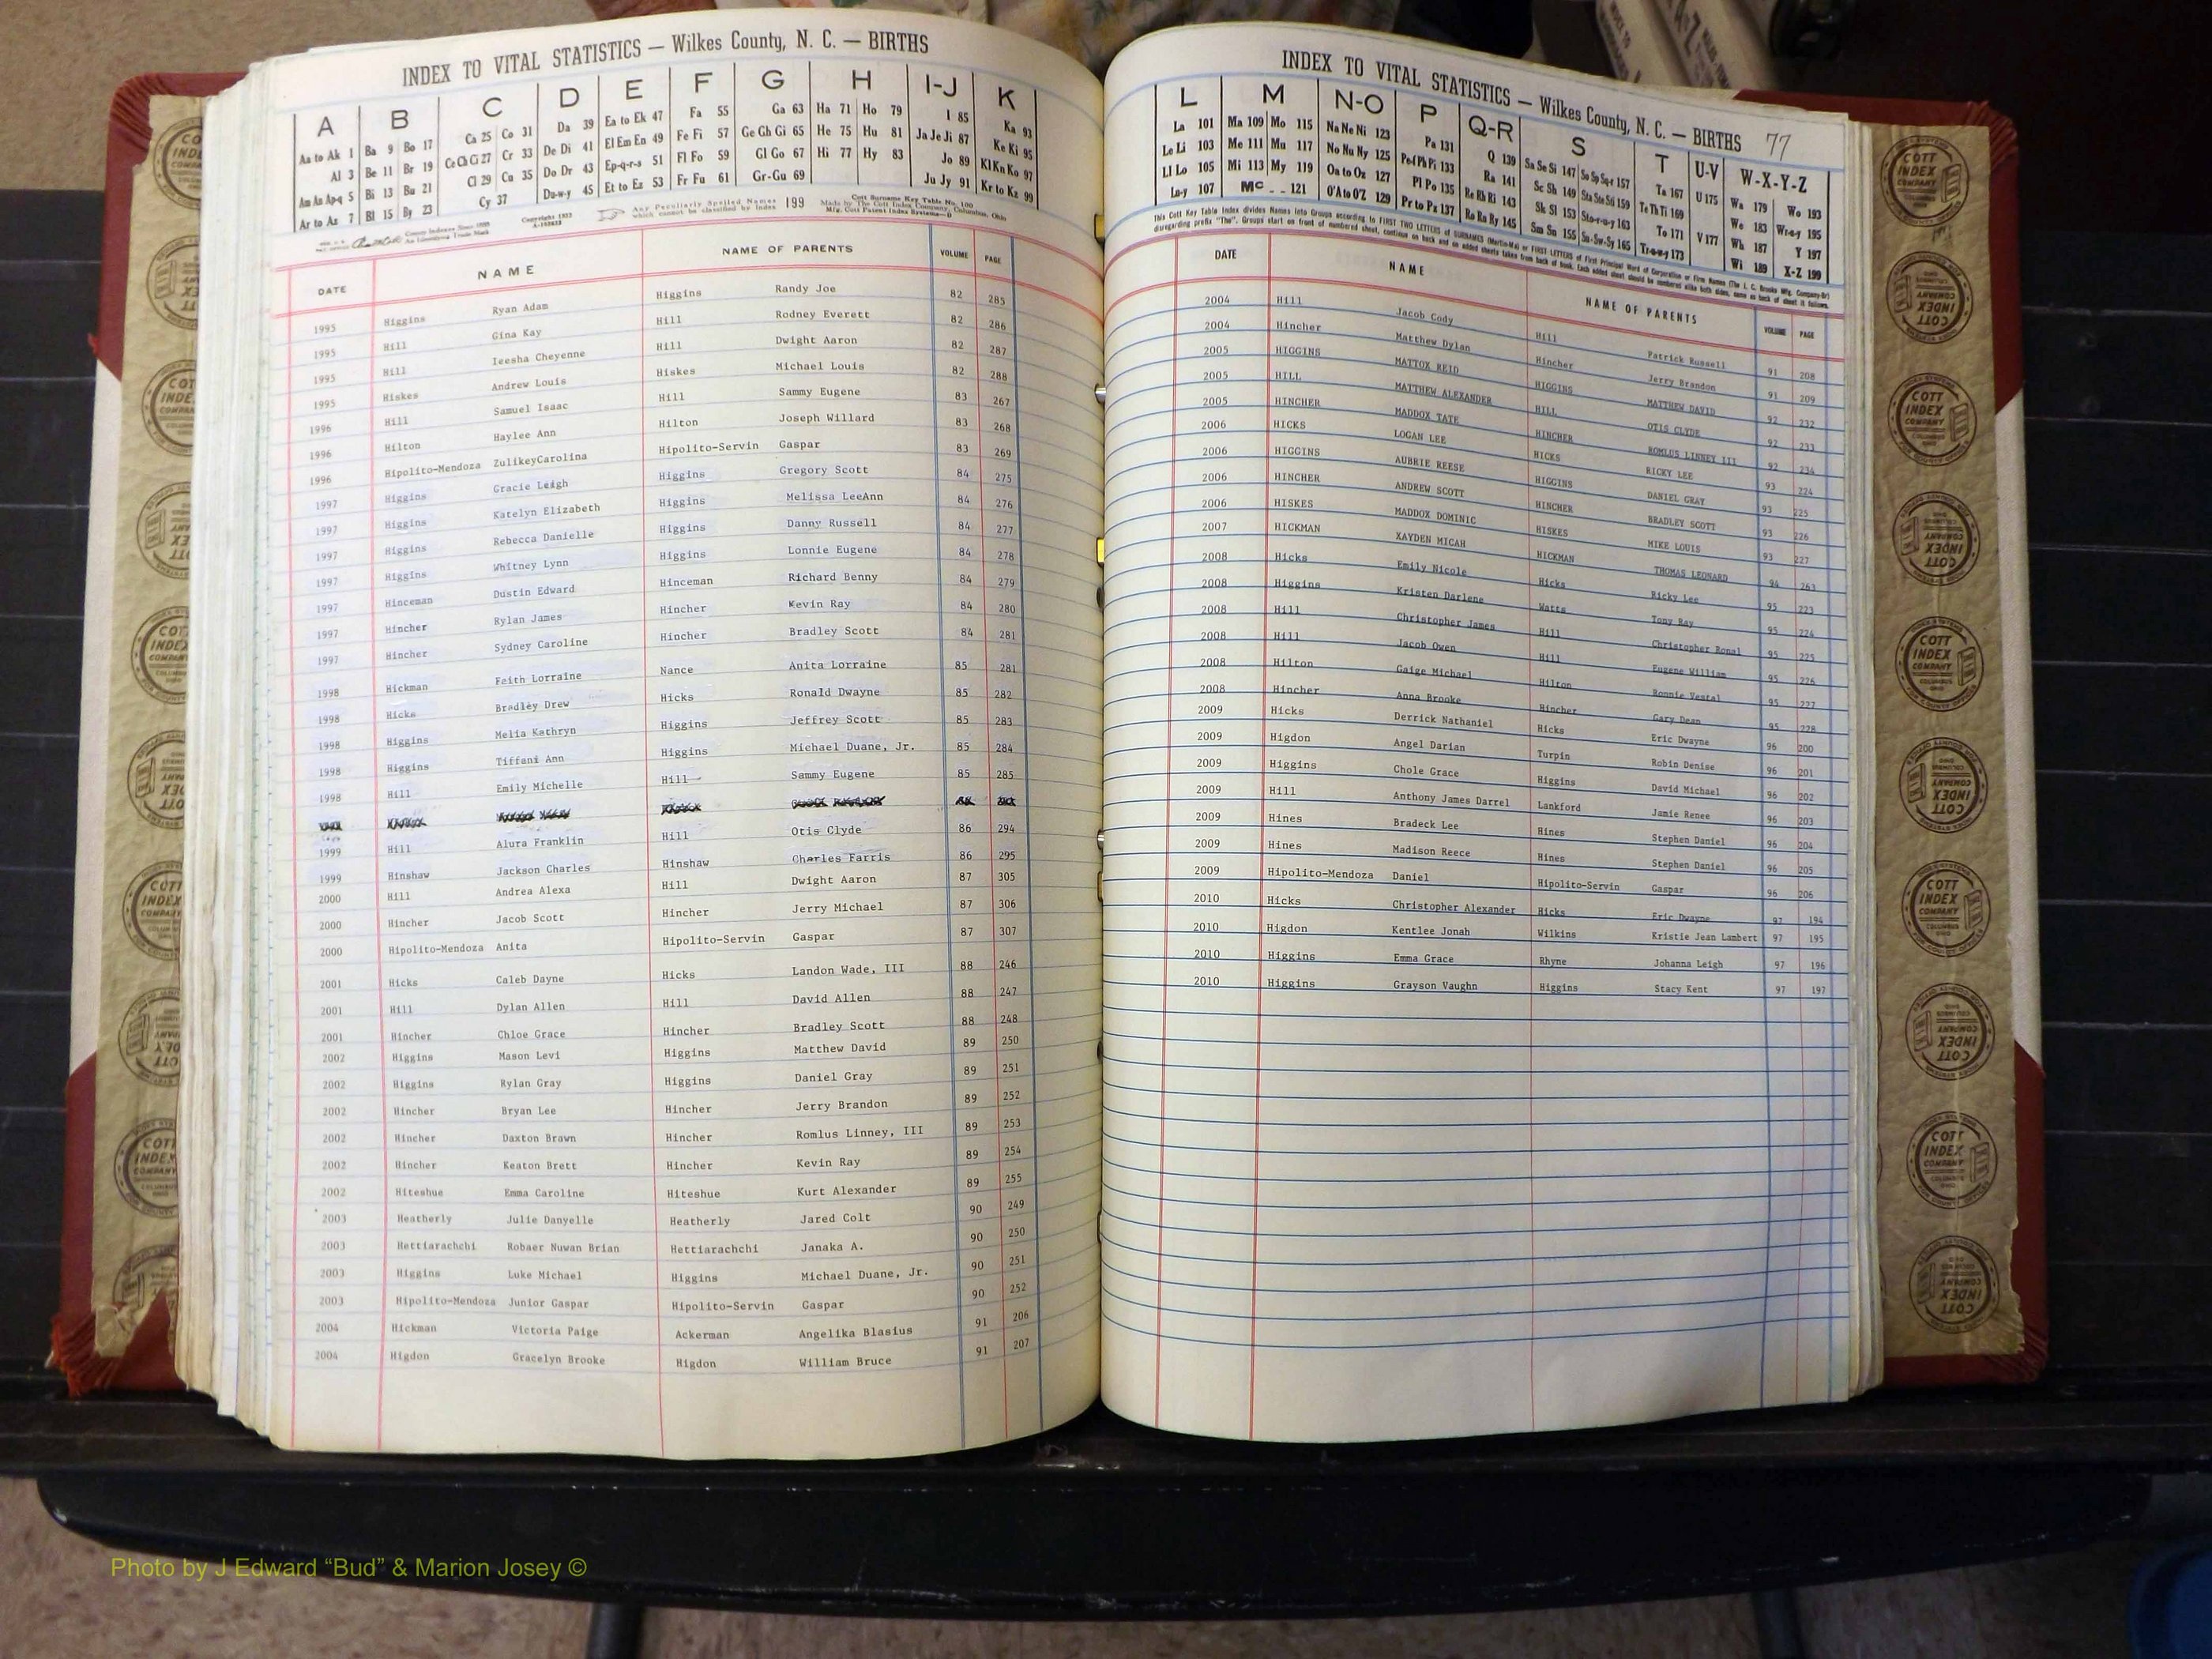 INDEX TO VITAL STATISTICS — Wilkes County, N. C. — BIRTHS
A B C D E F G H I-J K
Aa to Ak 1 Ba 9 Bo 17 Ca 25 Co 31 Da 39 Ea to Ek 47 Fa 55 Ga 63 Ha 71 Ho 79 I 85 Ka 93
Al 3 Be 11 Br 19 Ce Ch Ci 27 Cr 33 De Di 41 El Em En 49 Fe Fi 57 Ge Gh Gi 65 He 75 Hu 81 Ja Je Ji 87 Ke Ki 95
Am An Ap-q 5 Bi 13 Bu 21 Cl 29 Cu 35 Do Dr 43 Ep-q-r-s 51 Fl Fo 59 Gl Go 67 Hi 77 Hy 83 Jo 89 Kl Kn Ko 97
Ar to Az 7 Bl 15 By 23 Cy 37 Du-w-y 45 Et to Ez 53 Fr Fu 61 Gr-Gu 69 Ju Jy 91 Kr to Kz 99
Any Peculiarly Spelled Names which cannot be classified by Index 199
Cott Surname Key Table No. 100
Made by The Cott Index Company, Columbus, Ohio
DATE NAME NAME OF PARENTS VOLUME PAGE
1995 Higgins Ryan Adam Higgins Randy Joe 82 285
1995 Hill Gina Kay Hill Rodney Everett 82 286
1995 Hill Ieesha Cheyenne Hill Dwight Aaron 82 287
1995 Hiskes Andrew Louis Hiskes Michael Louis 82 288
1996 Hill Samuel Isaac Hill Sammy Eugene 83 267
1996 Hilton Haylee Ann Hilton Joseph Willard 83 268
1996 Hipolito-Mendoza ZulikeyCarolina Hipolito-Servin Gaspar 83 269
1997 Higgins Gracie Leigh Higgins Gregory Scott 84 275
1997 Higgins Katelyn Elizabeth Higgins Melissa LeeAnn 84 276
1997 Higgins Rebecca Danielle Higgins Danny Russell 84 277
1997 Higgins Whitney Lynn Higgins Lonnie Eugene 84 278
1997 Hinceman Dustin Edward Hinceman Richard Benny 84 279
1997 Hincher Rylan James Hincher Kevin Ray 84 280
1997 Hincher Sydney Caroline Hincher Bradley Scott 84 281
1998 Hickman Feith Lorraine Nance Anita Lorraine 85 281
1998 Hicks Bradley Drew Hicks Ronald Dwayne 85 282
1998 Higgins Melia Kathryn Higgins Jeffrey Scott 85 283
1998 Higgins Tiffani Ann Higgins Michael Duane, Jr. 85 284
1998 Hill Emily Michelle Hill Sammy Eugene 85 285
1999 Hill Alura Franklin Hill Otis Clyde 86 294
1999 Hinshaw Jackson Charles Hinshaw Charles Farris 86 295
2000 Hill Andrea Alexa Hill Dwight Aaron 87 305
2000 Hincher Jacob Scott Hincher Jerry Michael 87 306
2000 Hipolito-Mendoza Anita Hipolito-Servin Gaspar 87 307
2001 Hicks Caleb Dayne Hicks Landon Wade, III 88 246
2001 Hill Dylan Allen Hill David Allen 88 247
2001 Hincher Chloe Grace Hincher Bradley Scott 88 248
2002 Higgins Mason Levi Higgins Matthew David 89 250
2002 Higgins Rylan Gray Higgins Daniel Gray 89 251
2002 Hincher Bryan Lee Hincher Jerry Brandon 89 252
2002 Hincher Daxton Brawn Hincher Romlus Linney, III 89 253
2002 Hincher Keaton Brett Hincher Kevin Ray 89 254
2002 Hiteshue Emma Caroline Hiteshue Kurt Alexander 89 255
2003 Heatherly Julie Danyelle Heatherly Jared Colt 90 249
2003 Hettiarachchi Robaer Nuwan Brian Hettiarachchi Janaka A. 90 250
2003 Higgins Luke Michael Higgins Michael Duane, Jr. 90 251
2003 Hipolito-Mendoza Junior Gaspar Hipolito-Servin Gaspar 90 252
2004 Hickman Victoria Paige Ackerman Angelika Blasius 91 206
2004 Higdon Gracelyn Brooke Higdon William Bruce 91 207
INDEX TO VITAL STATISTICS — Wilkes County, N. C. — BIRTHS 77
L M N-O P Q-R S T U-V W-X-Y-Z
La 101 Ma 109 Mo 115 Na Ne Ni 123 Pa 131 Q 139 Sa Se Si 147 So Sp Sq-r 157 Ta 167 U 175 Wa 179 Wo 193
Le Li 103 Me 111 Mu 117 No Nu Ny 125 Pe-f Ph Pi 133 Ra 141 Sc Sh 149 Sta Ste Sti 159 Te Th Ti 169 V 177 We 183 Wr-a-y 195
Ll Lo 105 Mi 113 My 119 Oa to Oz 127 Pl Po 135 Re Rh Ri 143 Sk Sl 153 Sto-r-u-y 163 To 171 Wh 187 Y 197
Lu-y 107 Mc 121 O'A to O'Z 129 Pr to Pz 137 Ro Ru Ry 145 Sm Sn 155 Su-Sw-Sy 165 Tr-u-w-y 173 Wi 189 X-Z 199
DATE NAME NAME OF PARENTS VOLUME PAGE
2004 Hill Jacob Cody Hill Patrick Russell 91 208
2004 Hincher Matthew Dylan Hincher Jerry Brandon 91 209
2005 HIGGINS MATTOX REID HIGGINS MATTHEW DAVID 92 232
2005 HILL MATTHEW ALEXANDER HILL OTIS CLYDE 92 233
2005 HINCHER MADDOX TATE HINCHER ROMLUS LINNEY III 92 234
2006 HICKS LOGAN LEE HICKS RICKY LEE 93 224
2006 HIGGINS AUBRIE REESE HIGGINS DANIEL GRAY 93 225
2006 HINCHER ANDREW SCOTT HINCHER BRADLEY SCOTT 93 226
2006 HISKES MADDOX DOMINIC HISKES MIKE LOUIS 93 227
2007 HICKMAN XAYDEN MICAH HICKMAN THOMAS LEONARD 94 263
2008 Hicks Emily Nicole Hicks Ricky Lee 95 223
2008 Higgins Kristen Darlene Watts Tony Ray 95 224
2008 Hill Christopher James Hill Christopher Ronal 95 225
2008 Hill Jacob Owen Hill Eugene William 95 226
2008 Hilton Gaige Michael Hilton Ronnie Vestal 95 227
2008 Hincher Anna Brooke Hincher Gary Dean 95 228
2009 Hicks Derrick Nathaniel Hicks Eric Dwayne 96 200
2009 Higdon Angel Darian Turpin Robin Denise 96 201
2009 Higgins Chole Grace Higgins David Michael 96 202
2009 Hill Anthony James Darrel Lankford Jamie Renee 96 203
2009 Hines Bradeck Lee Hines Stephen Daniel 96 204
2009 Hines Madison Reece Hines Stephen Daniel 96 205
2009 Hipolito-Mendoza Daniel Hipolito-Servin Gaspar 96 206
2010 Hicks Christopher Alexander Hicks Eric Dwayne 97 194
2010 Higdon Kentlee Jonah Wilkins Kristie Jean Lambert 97 195
2010 Higgins Emma Grace Rhyne Johanna Leigh 97 196
2010 Higgins Grayson Vaughn Higgins Stacy Kent 97 197
COTT INDEX COMPANY
Photo by J Edward “Bud” & Marion Josey ©